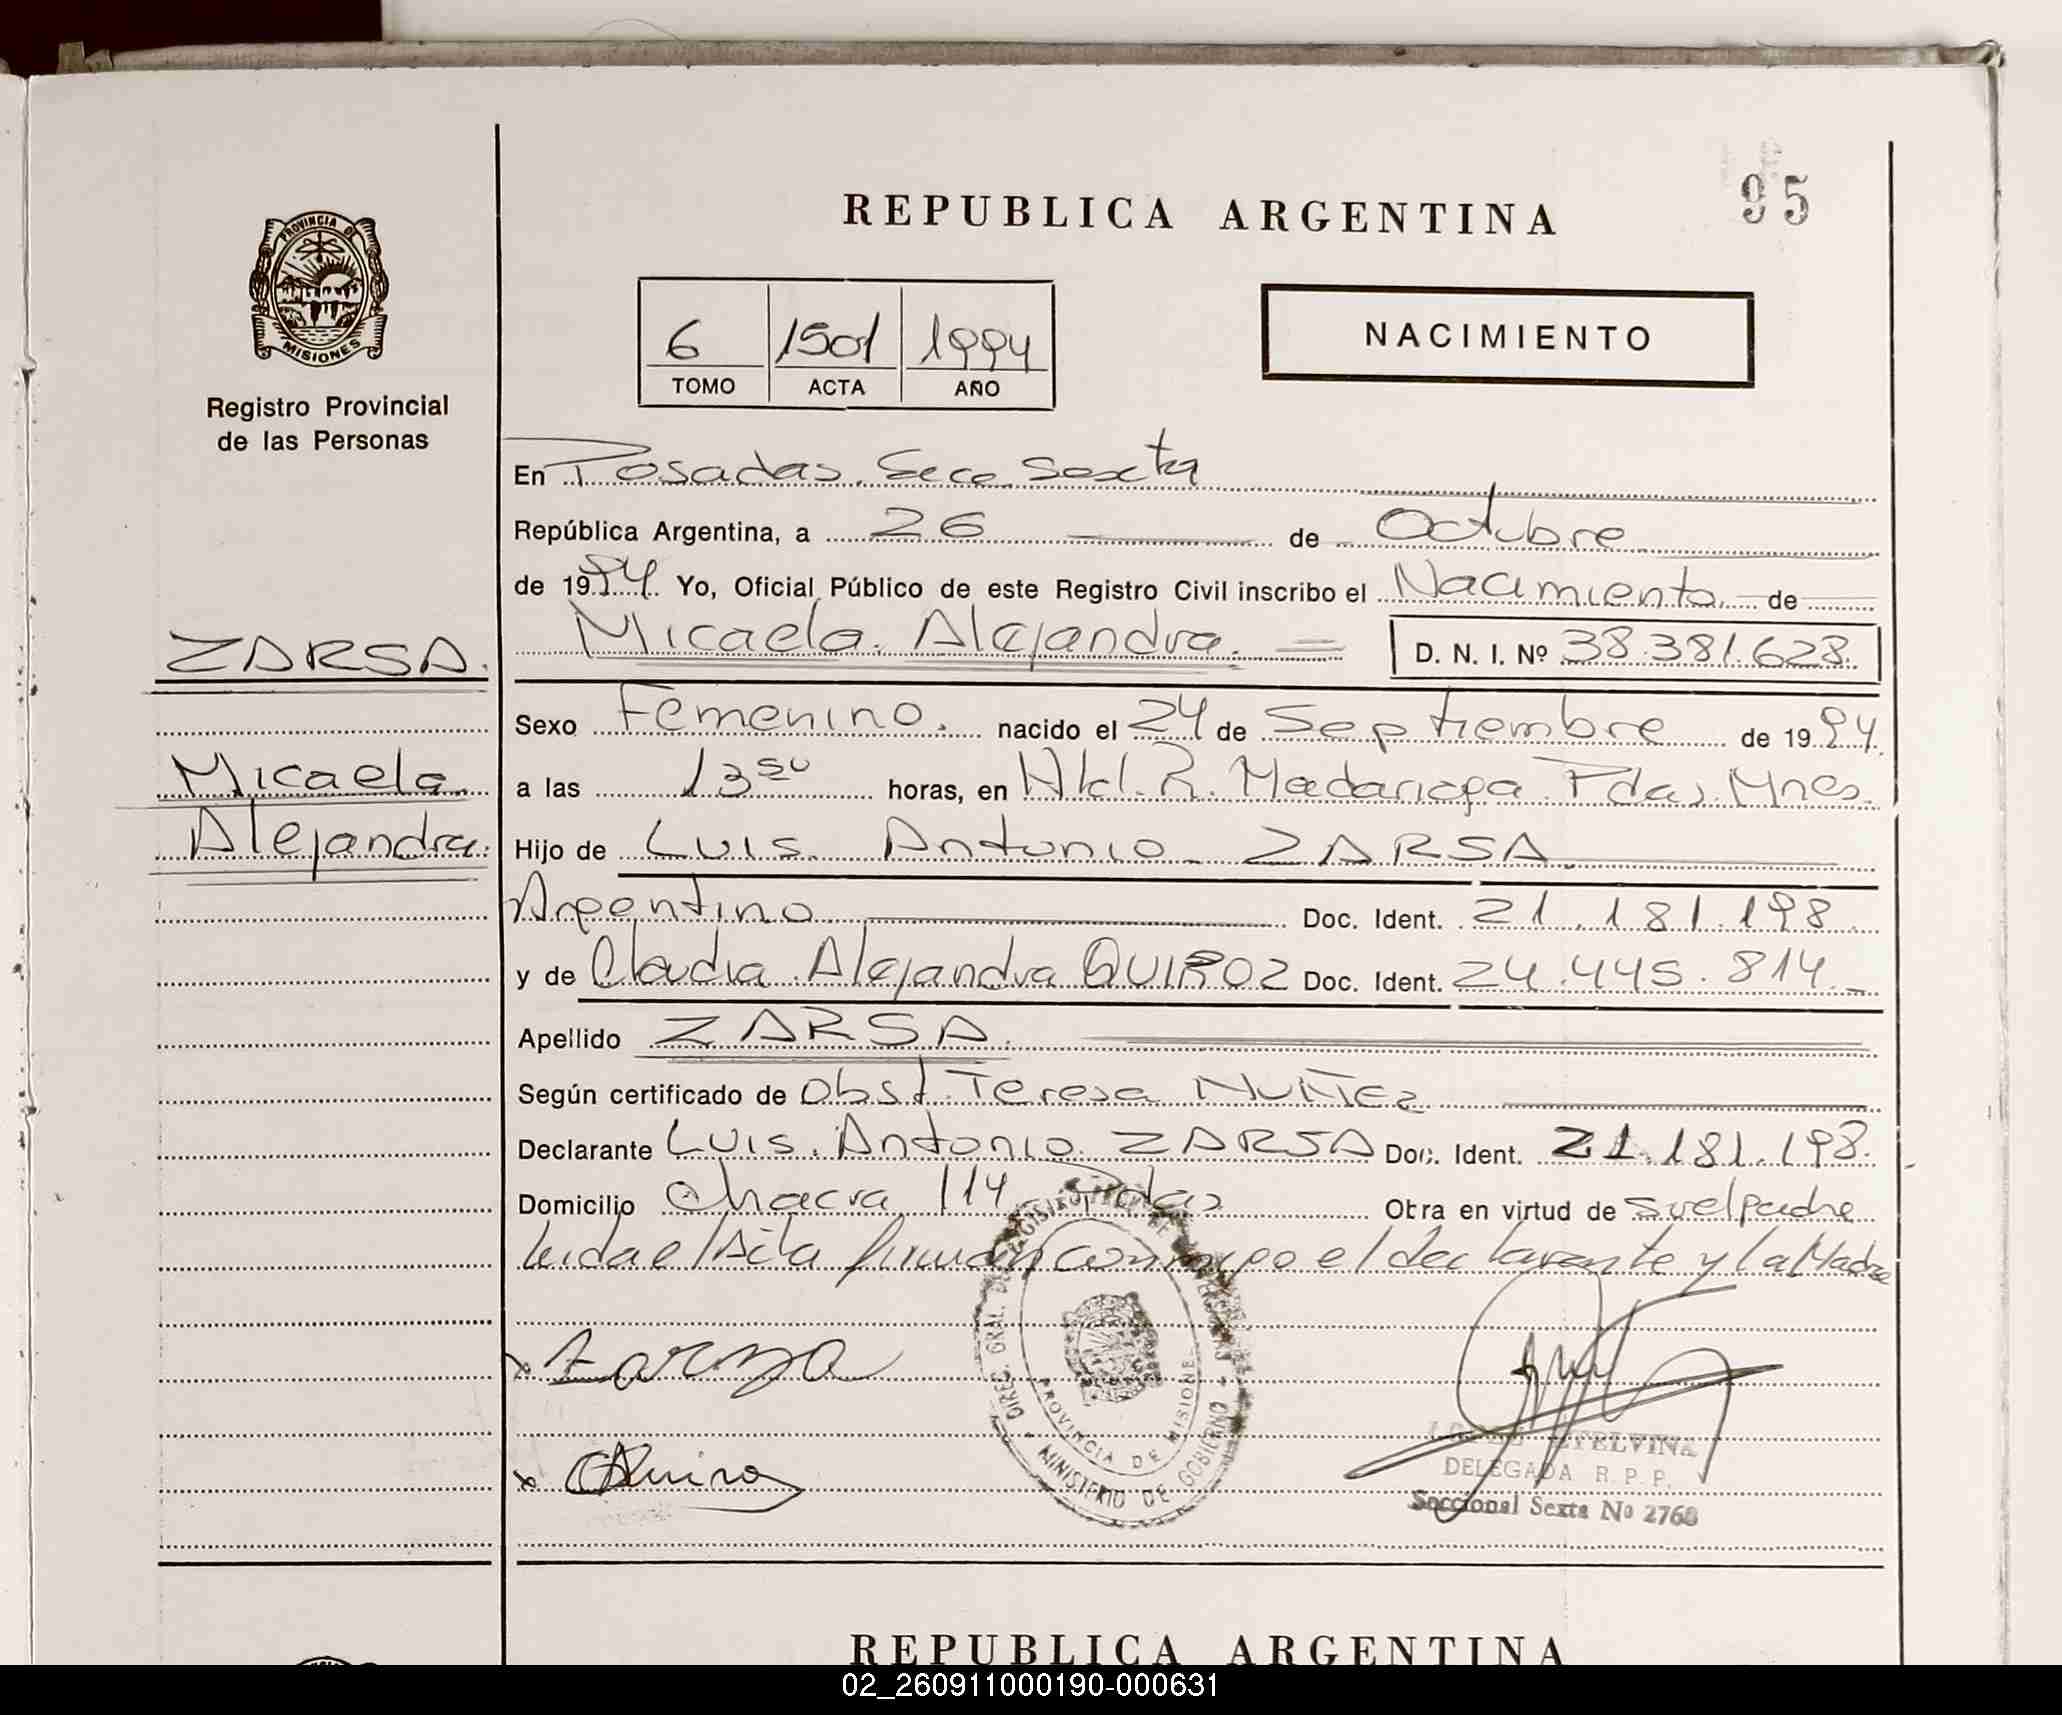 REPUBLICA ARGENTINA
95
PROVINCIA DE
MISIONES
Registro Provincial
de las Personas
6 1501 1994
TOMO ACTA AÑO
NACIMIENTO
En Posadas. Secc. Sexta
República Argentina, a 26 de Octubre
de 1994. Yo, Oficial Público de este Registro Civil inscribo el Nacimiento de
Micaela Alejandra. D. N. I. Nº 38.381.628.
ZARSA.
Micaela
Alejandra.
Sexo Femenino. nacido el 24 de Septiembre de 1994.
a las 13 50 horas, en Htal. R. Madariaga Pdas. Mnes.
Hijo de Luis Antonio ZARSA.
Argentino Doc. Ident. 21.181.198.
y de Claudia Alejandra QUIROZ Doc. Ident. 24.445.814.
Apellido ZARSA.
Según certificado de Obst. Teresa NUÑEZ
Declarante Luis Antonio ZARSA Doc. Ident. 21.181.198.
Domicilio Chacra 114 Pdas Obra en virtud de ser el padre
leida el Acta firman conmigo el declarante y la Madre
x Zarza
x Quiroz
DIREC. GRAL. DEL REGISTRO PROV. DE LAS PERSONAS
PROVINCIA DE MISIONES
MINISTERIO DE GOBIERNO
ETELVINA
DELEGADA R. P. P.
Seccional Sexta No 2768
REPUBLICA ARGENTINA
02_260911000190-000631